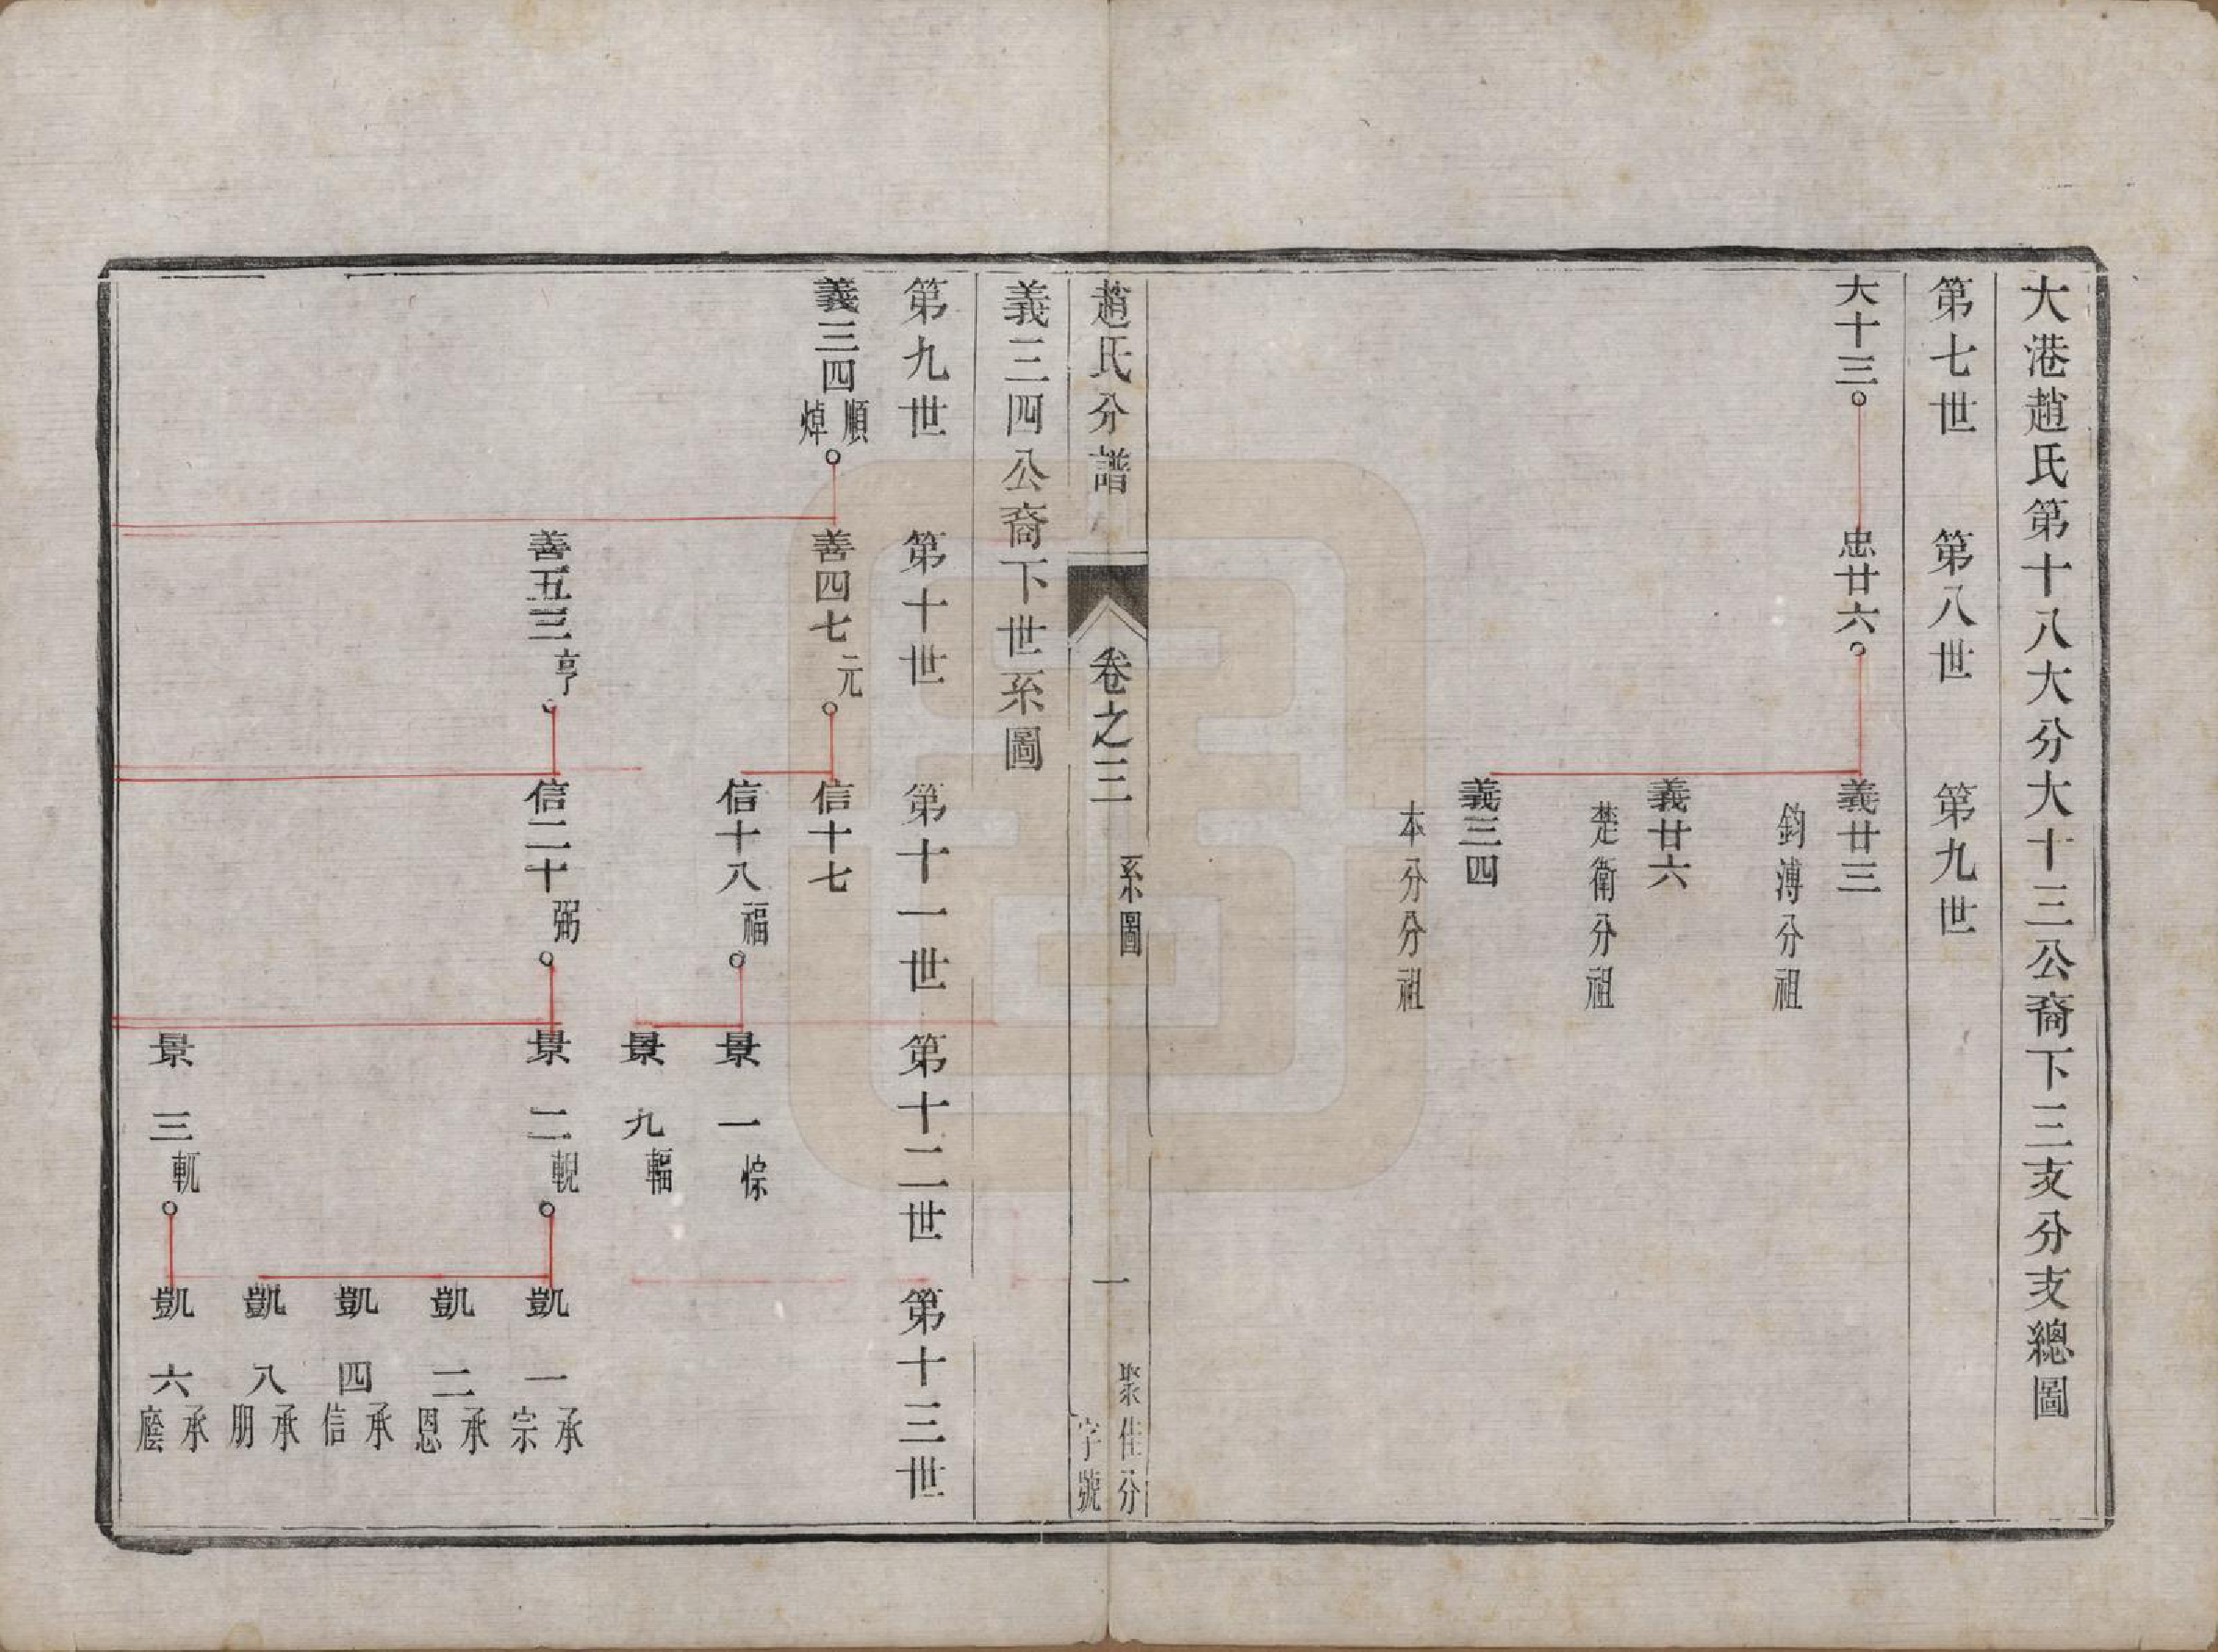 大港趙氏第十八大分大十三公裔下三支分支總圖
第七世 第八世 第九世
大十三 忠廿六 義廿三
鈞溥分祖
義廿六
楚衛分祖
義三四
本分分祖
趙氏分譜 卷之三 系圖 一 聚佳分字號
義三四公裔下世系圖
第九世 第十世 第十一世 第十二世 第十三世
義三四順焯 善四七元 信十七
信十八福 景一悰
景九輻
善五三亨 信二十弼 景二輗 凱一承宗
凱二承恩
凱四承信
凱八承朋
景三軏 凱六承廕